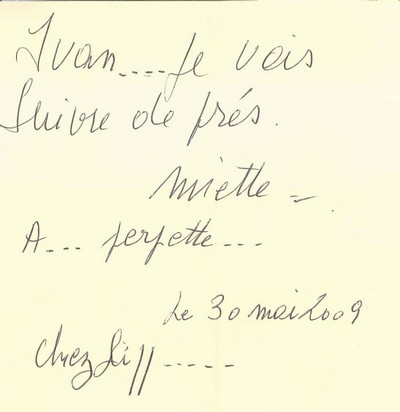 Ivan.... je vais
suivre de prés.
Miette -
A... perpette...
Le 30 mai 2009
Chez Lipp.....